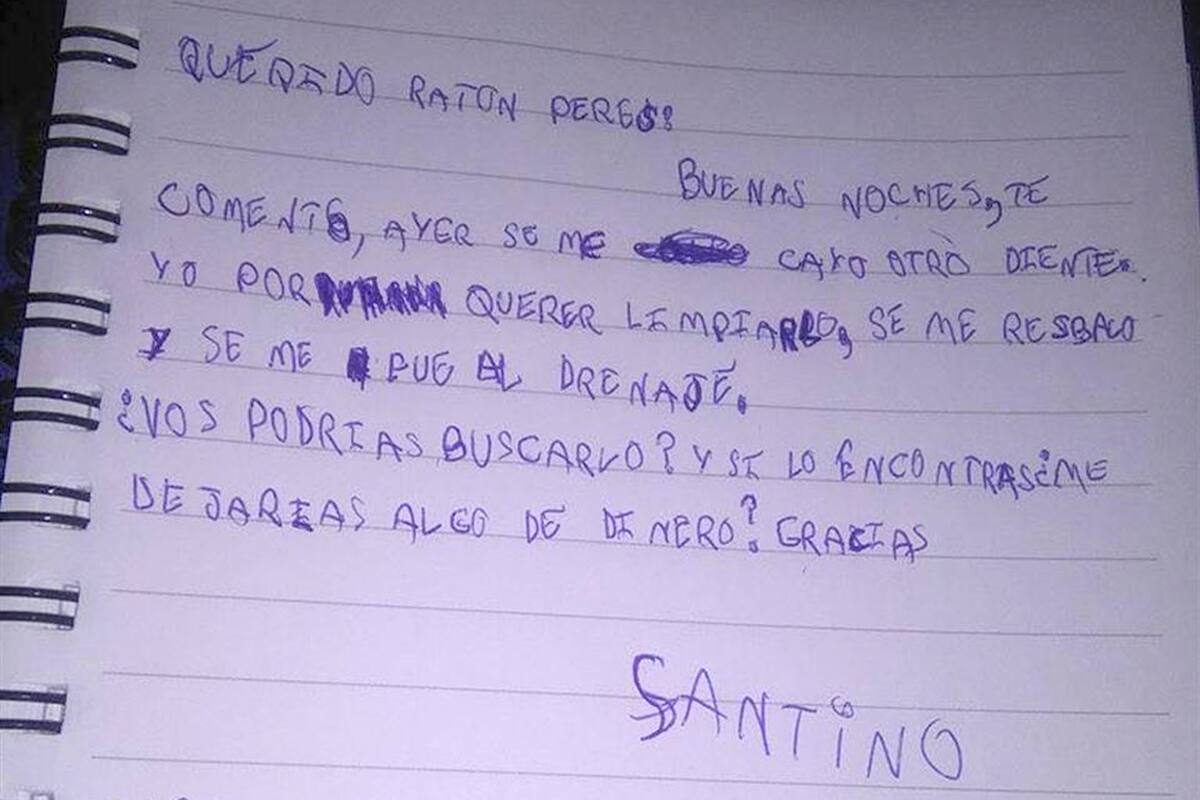 QUERIDO RATON PERES:
BUENAS NOCHES, TE
COMENTO, AYER SE ME CAYO OTRO DIENTE.
YO POR QUERER LIMPIARLO, SE ME RESBALO
Y SE ME FUE AL DRENAJE.
¿VOS PODRIAS BUSCARLO? Y SI LO ENCONTRAS¿ME
DEJARIAS ALGO DE DINERO? GRACIAS
SANTINO